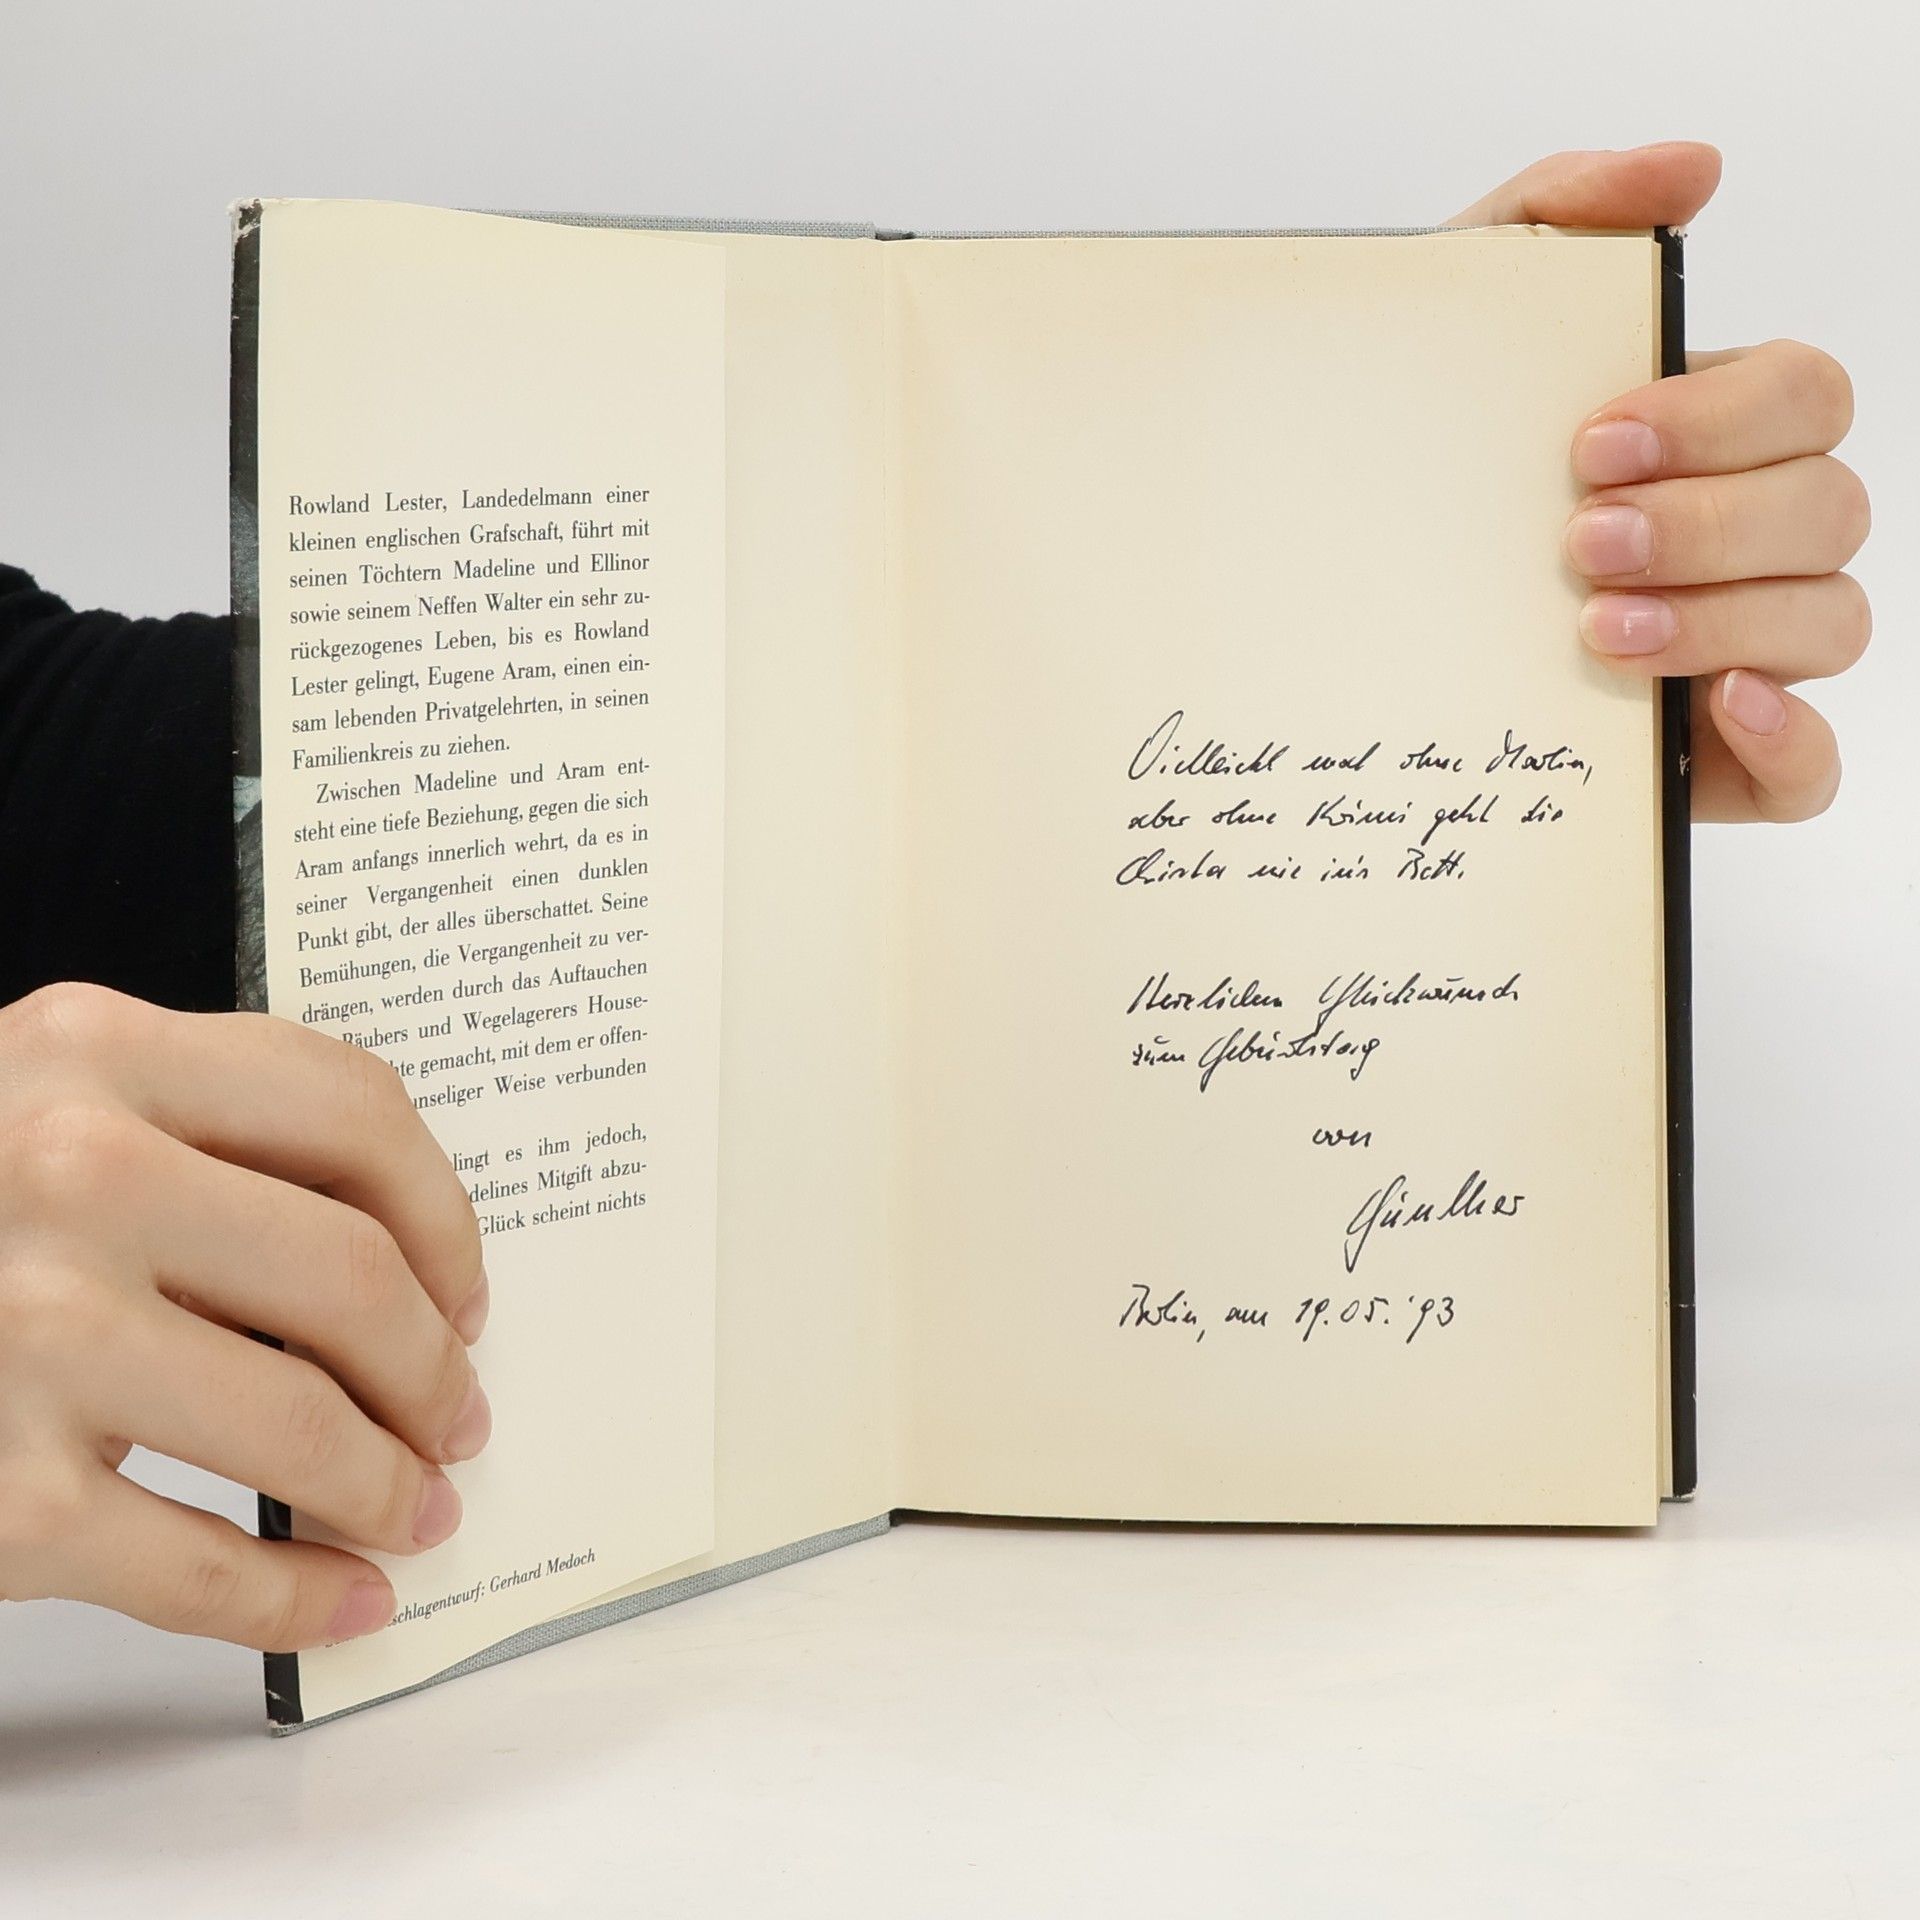 Rowland Lester, Landedelmann einer
kleinen englischen Grafschaft, führt mit
seinen Töchtern Madeline und Ellinor
sowie seinem Neffen Walter ein sehr zu-
rückgezogenes Leben, bis es Rowland
Lester gelingt, Eugene Aram, einen ein-
sam lebenden Privatgelehrten, in seinen
Familienkreis zu ziehen.
Zwischen Madeline und Aram ent-
steht eine tiefe Beziehung, gegen die sich
Aram anfangs innerlich wehrt, da es in
seiner Vergangenheit einen dunklen
Punkt gibt, der alles überschattet. Seine
Bemühungen, die Vergangenheit zu ver-
drängen, werden durch das Auftauchen
Räubers und Wegelagerers House-
gemacht, mit dem er offen-
unseliger Weise verbunden
lingt es ihm jedoch,
delines Mitgift abzu-
Glück scheint nichts
schlagentwurf: Gerhard Medoch
Vielleicht mal ohne
aber ohne Krimi geht die
Christa nie in's Bett.
Herzlichen Glückwunsch
zum Geburtstag
von
Günther
Berlin, am 19.05.'93